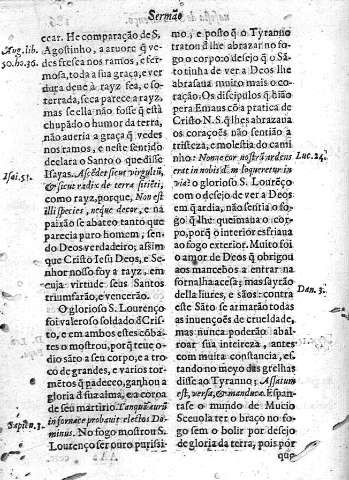 Sermão
Aug. lib.
50. ho. 36.
Isai. 53.
Sapien. 3.
cear. He comparação de S.
Agostinho, a aruore q̃ ve-
des fresca nos ramos, e fer-
mosa, toda a sua graça, e ver
dura dene à rayz fea, e so-
terrada, seca parece a rayz,
mas se ella não fosse q̃ está
chupãdo o humor da terra,
não aueria a graça q̃ vedes
nos ramos, e neste sentido
declara o Santo o que disse
Isayas. Ascẽdet sicut virgultũ,
& sicut radix de terra sitiẽti,
como rayz, porque, Non est
illi species, neque decor, e na
paixão se abateo tanto que
parecia puro homem, sen-
do Deos verdadeiro; assim
que Cristo Iesu Deos, e Se
nhor nosso foy a rayz, em
cuja virtude seus Santos
triumfarão, e vencerão.
O glorioso S. Lourenço
foi valeroso soldado d'Cris
to, e em ambos os comba-
tes o mostrou, porq̃ teue o-
dio sãto a seu corpo, e a tro
co de grandes, e varios tor-
mẽtos q̃ padeceo, ganhou a
gloria d'sua alma, e a coroa
de seu martirio. Tanquã aurũ
in fornace probauit electos Do
minus. No fogo mostrou S.
Lourenço ser ouro purissi-
mo, e posto q̃ o Tyranno
tratou d'lhe abrazar no fo-
go o corpo: o desejo q̃ o Sã-
to tinha de ver a Deos lhe
abrasaua muito mais o co-
ração. Os discipulos q̃ hião
pera Emaus cõ a pratica de
Cristo N. S. q̃ lhes abrazaua
os corações não sentião a
tristeza, e molestia do cami
nho: Nonne cor nostrũ ardens
erat in nobis dũ loqueretur in
via? o glorioso S. Lourẽço
com o desejo de ver a Deos
em q̃ ardia, não sentia o fo-
go q̃ lhe queimaua o cor-
po, porq̃ o interior esfriaua
ao fogo exterior. Muito foi
o amor de Deos q̃ obrigou
aos mancebos a entrar na
fornalha acesa; mas sayrão
della liures, e sãos: contra
este Sãto se armarão todas
as inuenções de crueldade,
mas nunca poderão abal-
roar sua inteireza, antes
com muita constancia, es-
tando no meyo das grelhas
disse ao Tyranno: Assatum
est, versa, & manduca. Espan-
tase o mundo de Mucio
Sceuola ter o braço no fo-
go sem o bolir por desejo
de gloria da terra, pois por
que
Luc. 24.
Dan. 3.